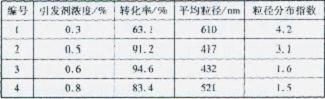 编号 引发剂浓度/% 转化率/% 平均粒径/nm 粒径分布指数
1 0.3 63.1 610 4.2
2 0.5 91.2 417 3.1
3 0.6 94.6 432 1.6
4 0.8 83.4 521 1.5